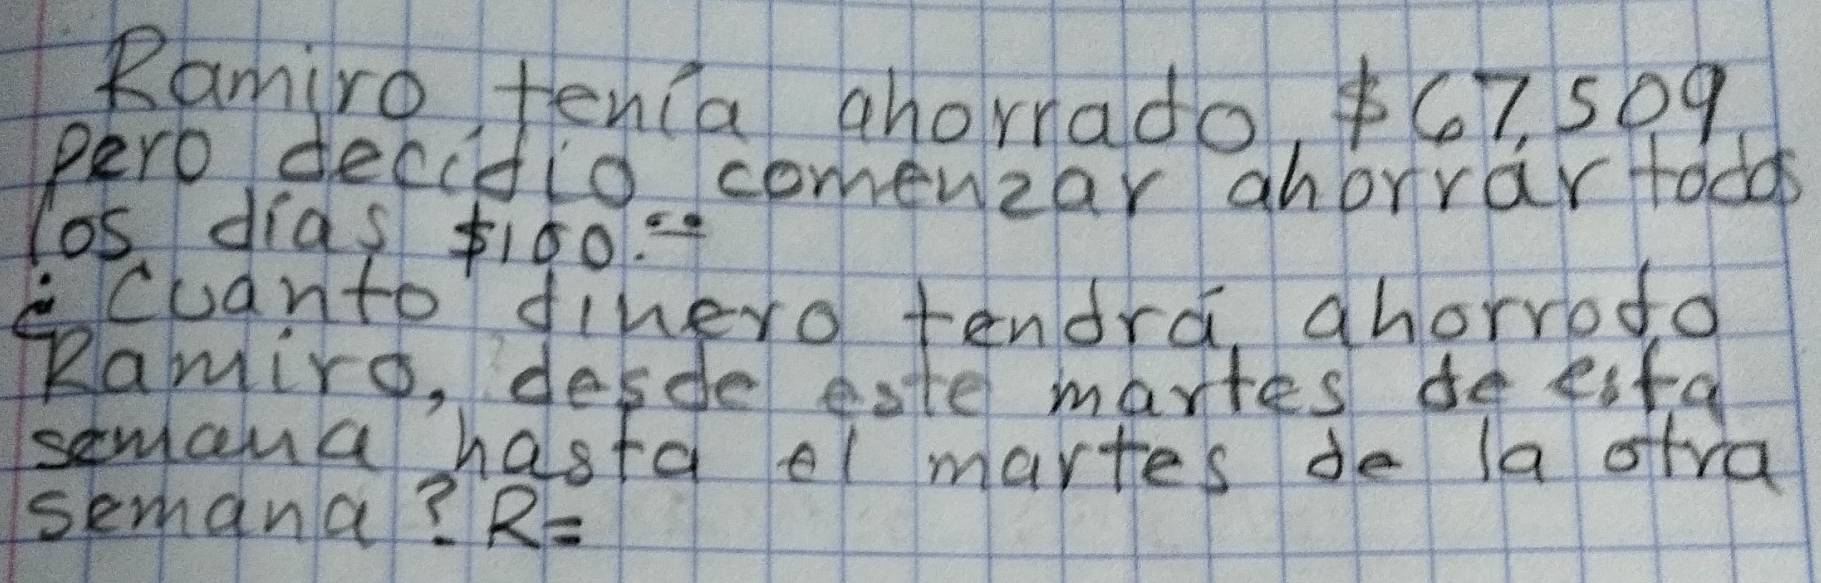 Ramiro tenía ahorrado, $67,509
pero decidio comenzar ahorrar todos
los días $100.=
¿Cuanto dinero tendrá ahorrodo
Ramiro, desde este martes de esta
semana hasta el martes de la otra
semana? R=